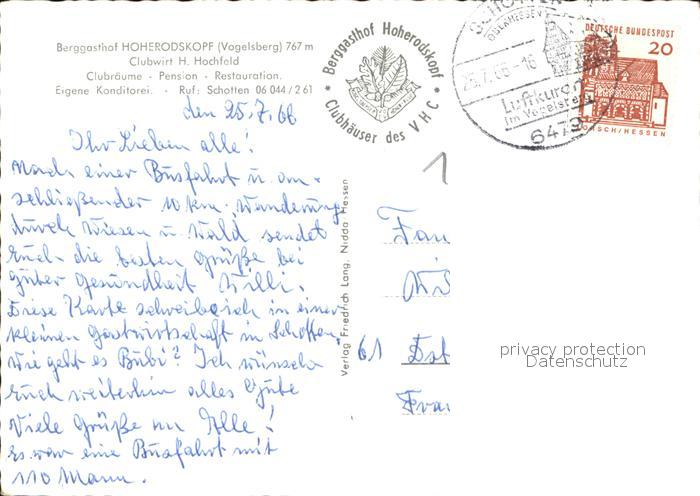 Berggasthof HOHERODSKOPF (Vogelsberg) 767 m
Clubwirt H. Hochfeld
Clubräume - Pension - Restauration.
Eigene Konditorei. - Ruf: Schotten 06 044 / 2 61
Berggasthof Hoherodskopf
Clubhäuser des VHC
SCHOTTEN
OBERHESSEN
25.7.66-16
Luftkurort
im Vogelsberg
6479
DEUTSCHE BUNDESPOST
20
LORSCH/HESSEN
den 25.7.66
Ihr Lieben alle!
Nach einer Busfahrt u. an-
schließender 10 km. Wanderung
durch Wiesen u. Wald sendet
Euch die besten Grüße bei
guter Gesundheit Willi.
Diese Karte schreibe ich in einer
kleinen Gastwirtschaft in Schotten.
Wie geht es Bubi? Ich wünsche
Euch weiterhin alles Gute
Viele Grüße an Alle!
Es war eine Busfahrt mit
110 Mann.
Verlag Friedrich Lang, Nidda Hessen
1
Fam
61
privacy protection
Datenschutz